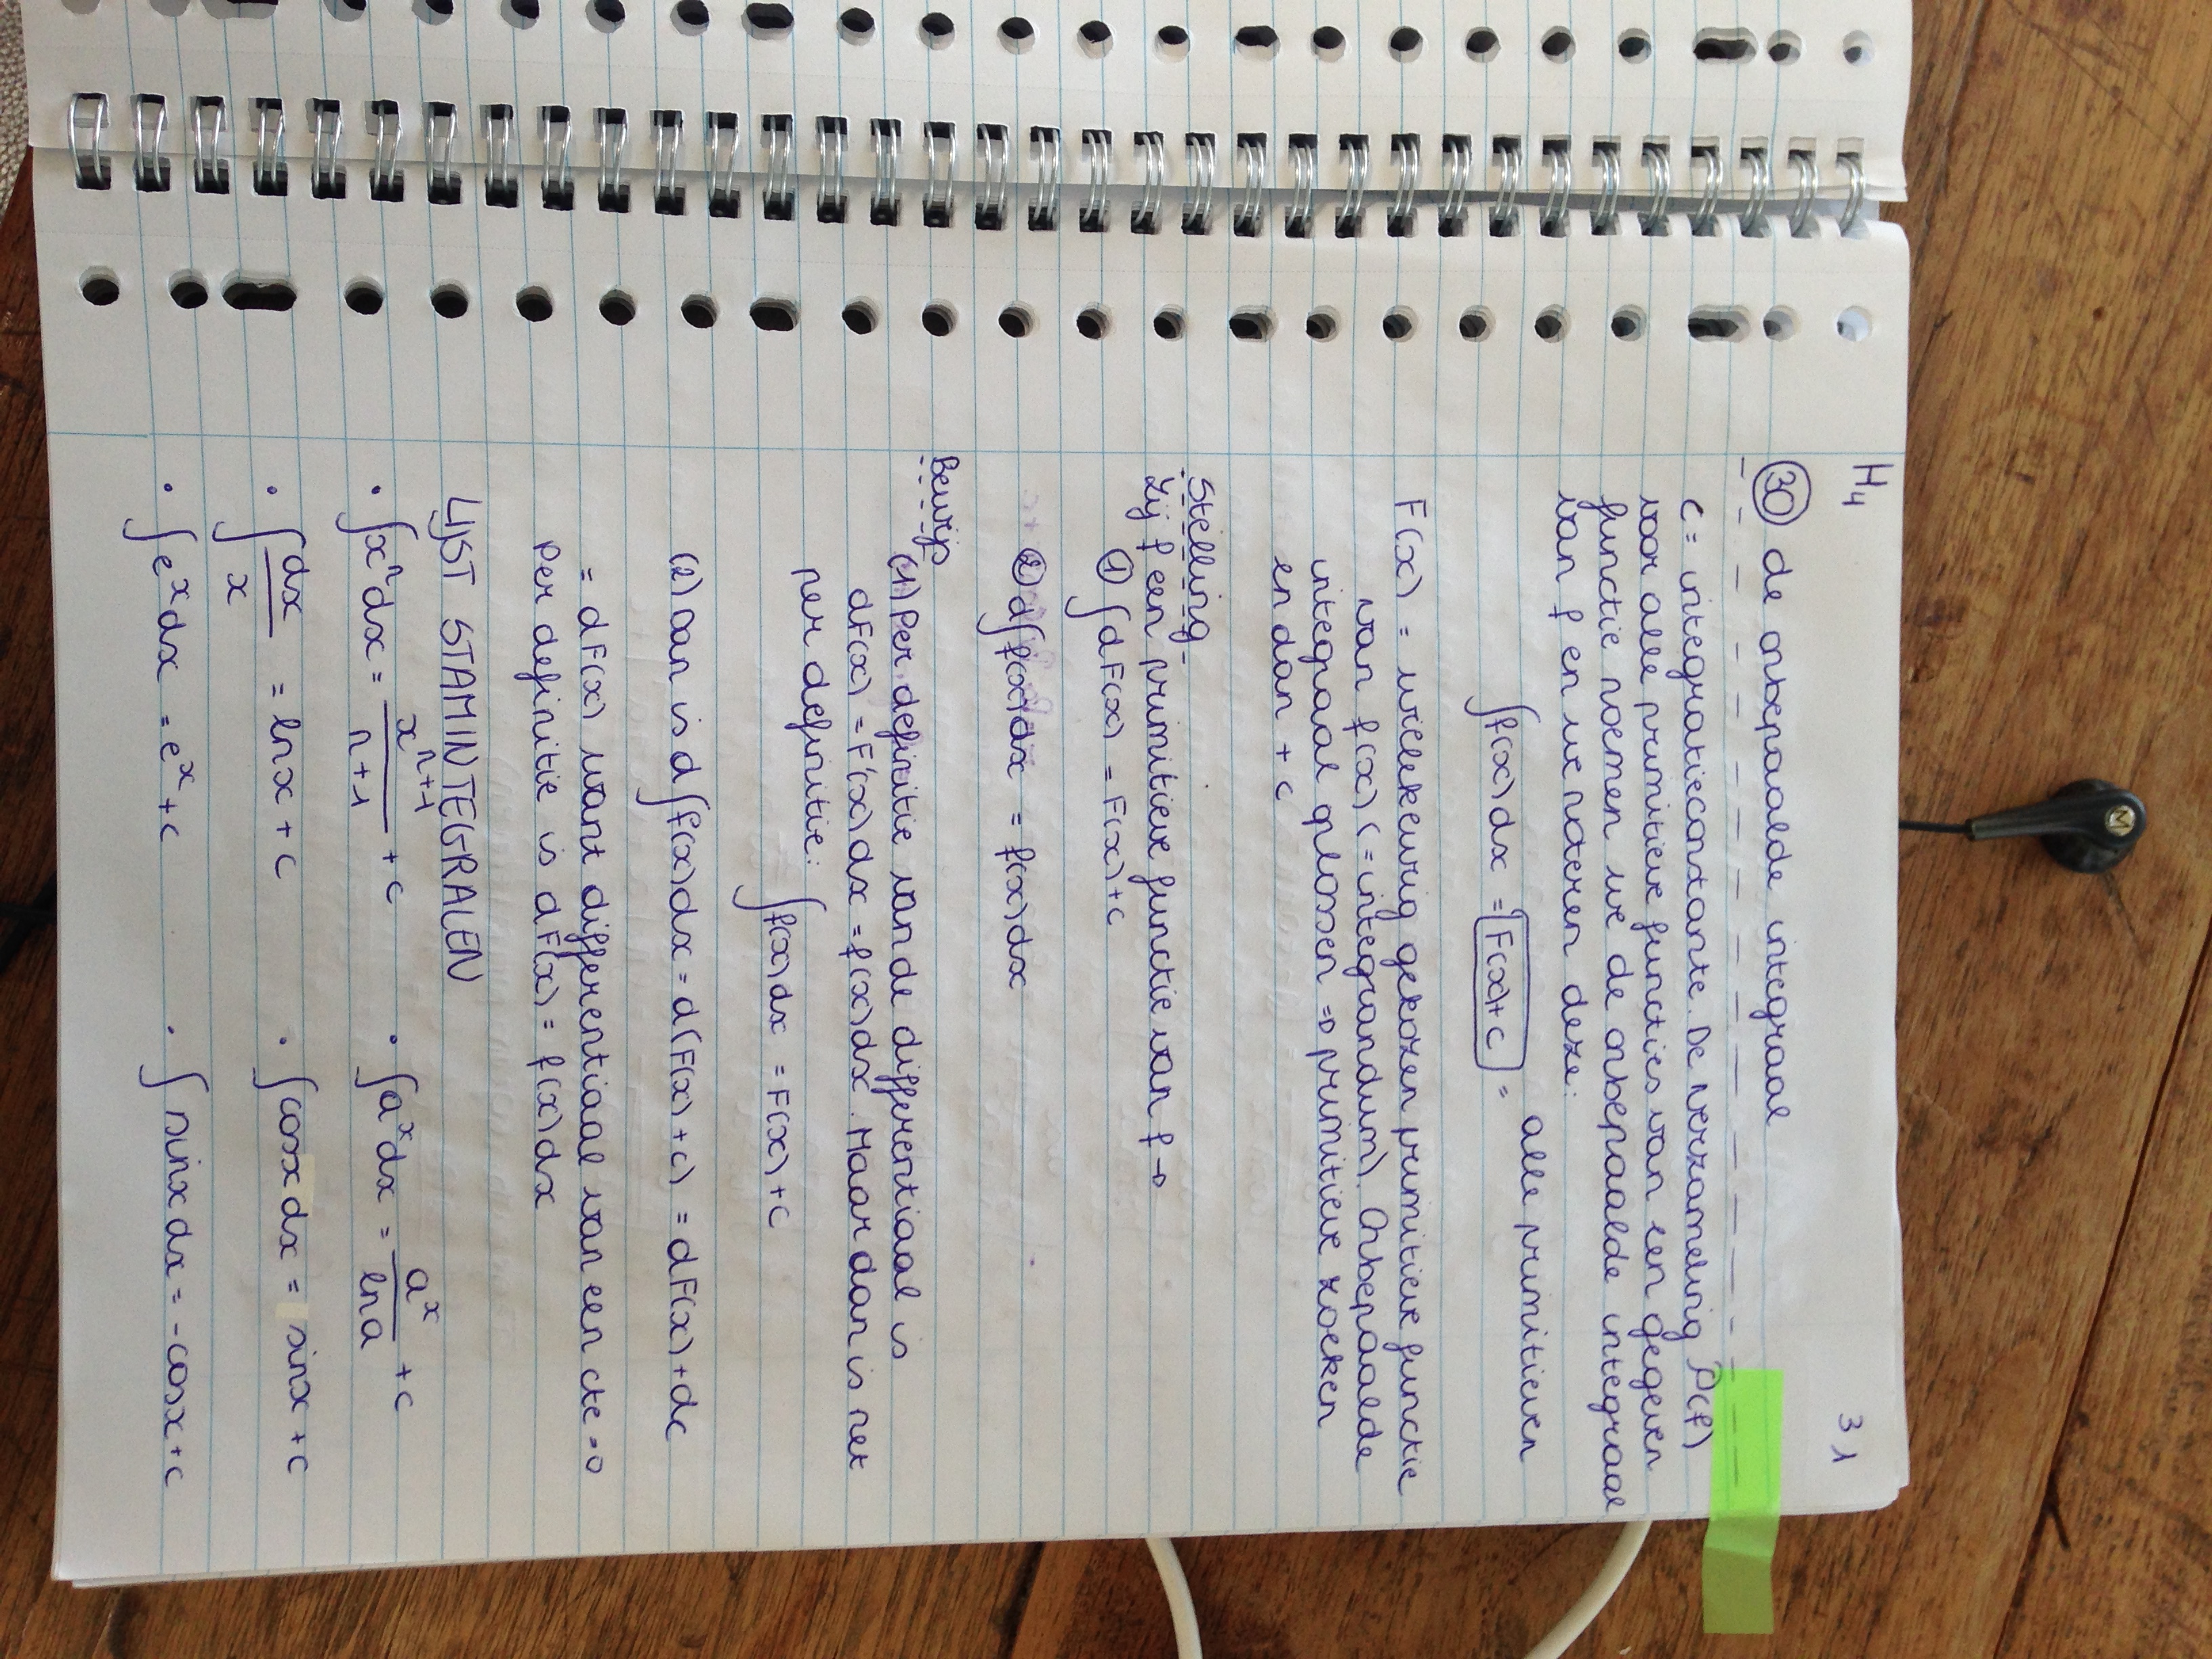 M
H4
31
30 de onbepaalde integraal
c = integratieconstante. De verzameling P(f)
voor alle primitieve functies van een gegeven
functie noemen we de onbepaalde integraal
van f en we noteren deze:
∫f(x)dx = F(x)+c = alle primitieven
F(x) = willekeurig gekozen primitieve functie
van f(x) (=integrandum). Onbepaalde
integraal oplossen ⇒ primitieve zoeken
en dan + c
Stelling
Zij f een primitieve functie van f →
① ∫dF(x) = F(x)+c
② d∫f(x)dx = f(x)dx
Bewijs
(1) Per definitie van de differentiaal is
dF(x) = F'(x)dx = f(x)dx. Maar dan is net
per definitie:
∫f(x)dx = F(x)+c
(2) Dan is d∫f(x)dx = d(F(x)+c) = dF(x)+dc
= dF(x) want differentiaal van een cte = 0
Per definitie is dF(x) = f(x)dx
LIJST STAMINTEGRALEN
• ∫xⁿdx = xⁿ⁺¹/(n+1) + c • ∫aˣdx = aˣ/ln a + c
• ∫dx/x = lnx + c • ∫cosx dx = sinx + c
• ∫eˣdx = eˣ + c • ∫sinx dx = -cosx + c